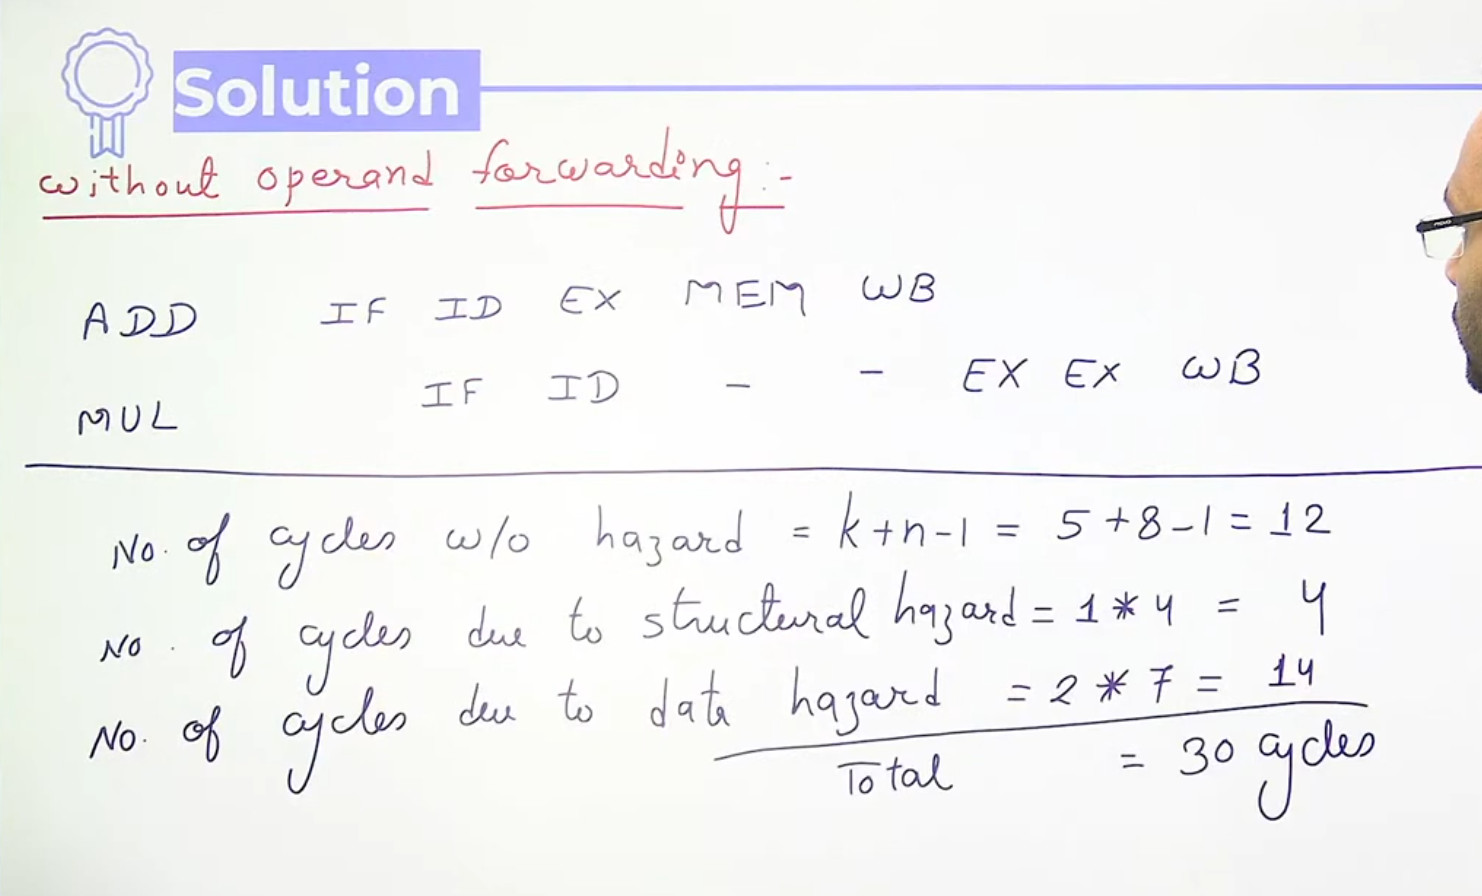 Solution
without operand forwarding :-
ADD IF ID EX MEM WB
MUL IF ID - - EX EX WB
No. of cycles w/o hazard = k+n-1 = 5+8-1 = 12
No. of cycles due to structural hazard = 1*4 = 4
No. of cycles due to data hazard = 2*7 = 14
Total = 30 cycles